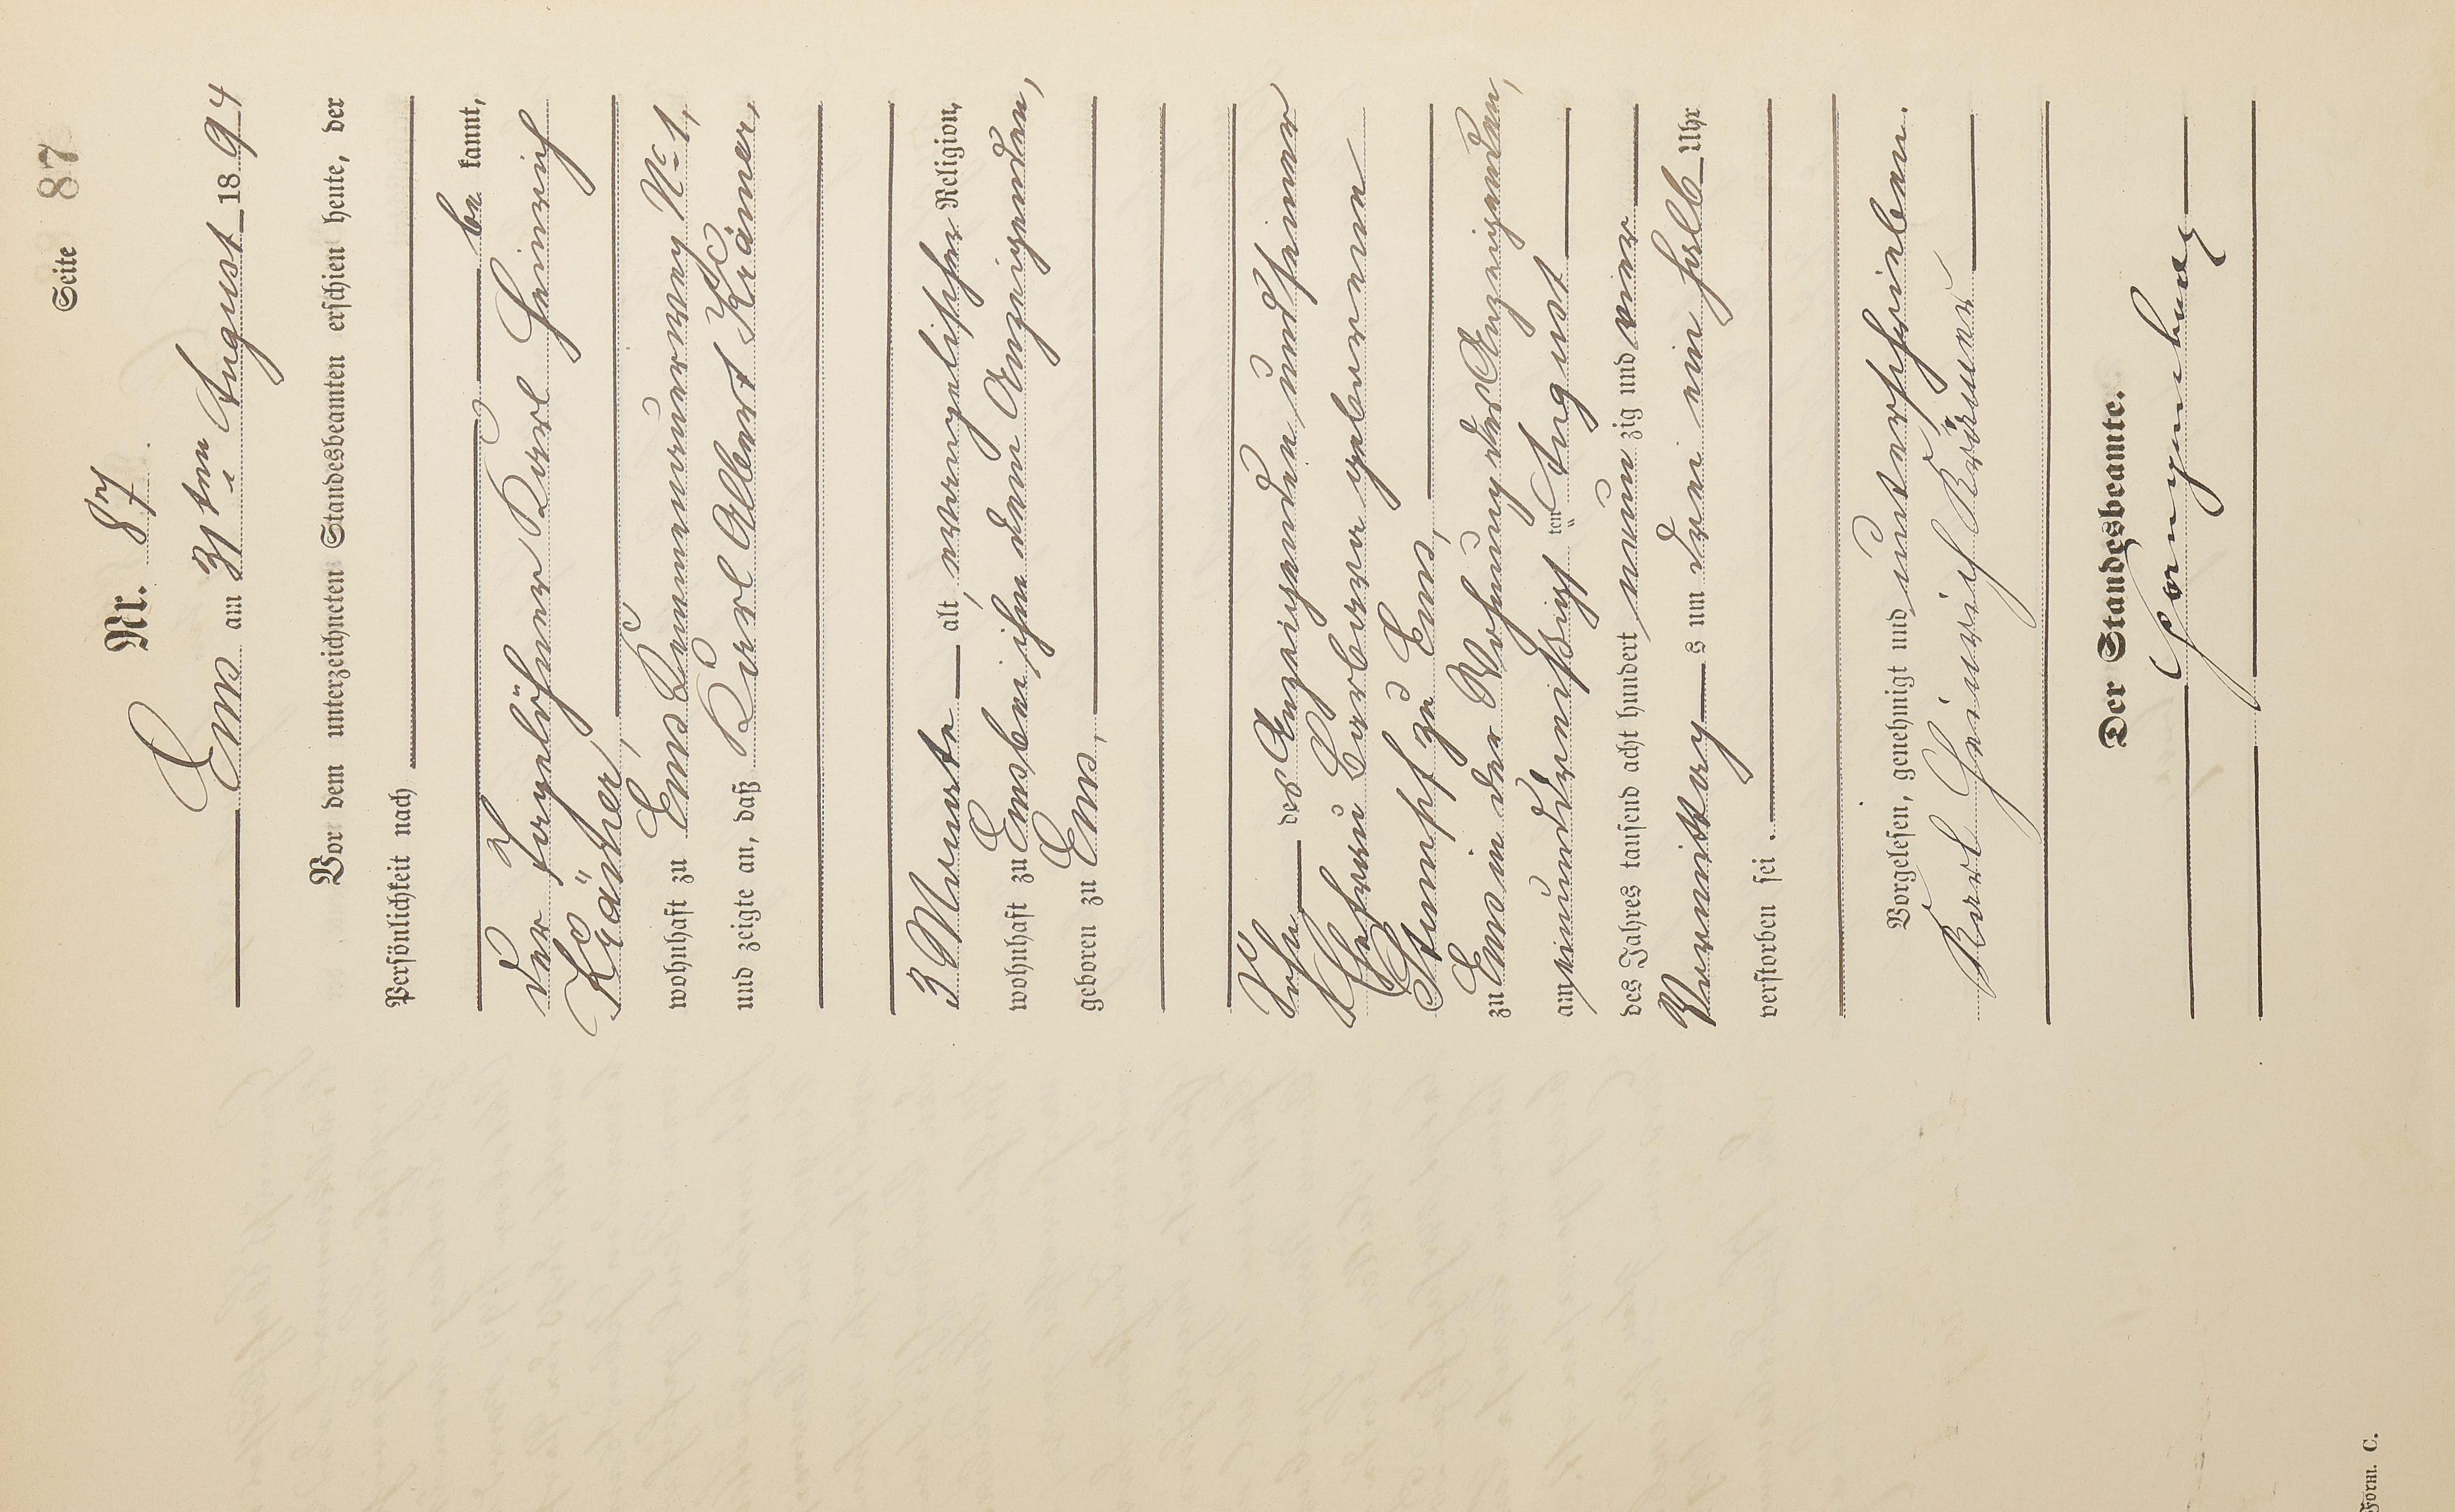 Seite 87
Nr. 87
Ems am 31ten August 1894
Vor dem unterzeichneten Standesbeamten erschien heute, der
Persönlichkeit nach
be kannt,
der Tagelöhner Karl Heinrich
wohnhaft zu Ems Kummenauerweg No 1,
und zeigte an, daß Karl Albert Krämer,
3 Monate alt, evangelischer Religion,
wohnhaft zu Ems bei ihm dem Anzeigenden,
geboren zu Ems,
Sohn des Anzeigenden und seiner
Ehefrau Barbara geborene
Stumpf zu Ems,
zu Ems in der Wohnung des Anzeigenden,
am einunddreißigsten August
des Jahres tausend acht hundert neunzig und vier
Vormittags um drei ein halb Uhr
verstorben sei.
Vorgelesen, genehmigt und unterschrieben.
Karl Heinrich Krämer
Der Standesbeamte.
Form. C.